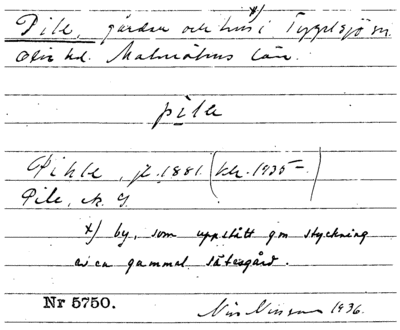 Pile, gårdar och hus x) i Tygelsjö sn.
Oxie hd. Malmöhus län.
pile
Pihle, jb. 1881. (kbr. 1935–)
Pile, A. G.
x) by, som uppstått gm styckning
av en gammal sätesgård.
Nr 5750.
Nils Nilsson 1936.